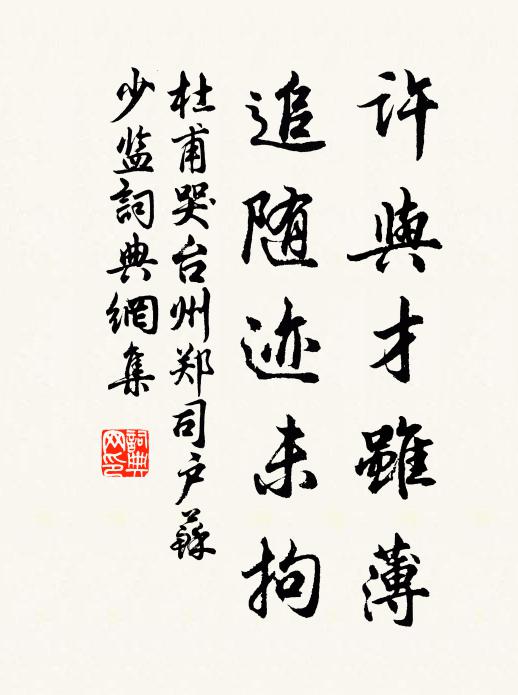 許與才雖薄
追随迹未拘
杜甫哭台州郑司户蘇
少监詞典網集
詞典
网印